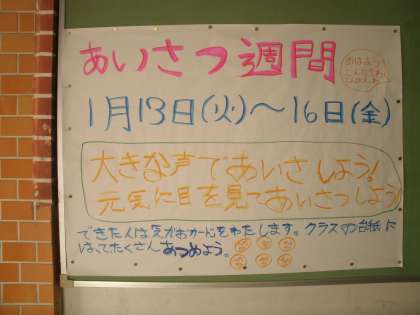 あいさつ週間
おはよう
こんにちは
1月13日(火)~16日(金)
大きな声であいさしよう!
元気に目を見てあいさつしよう
できた人は笑がおカードをわたします。クラスの台紙に
はってたくさんあつめよう。